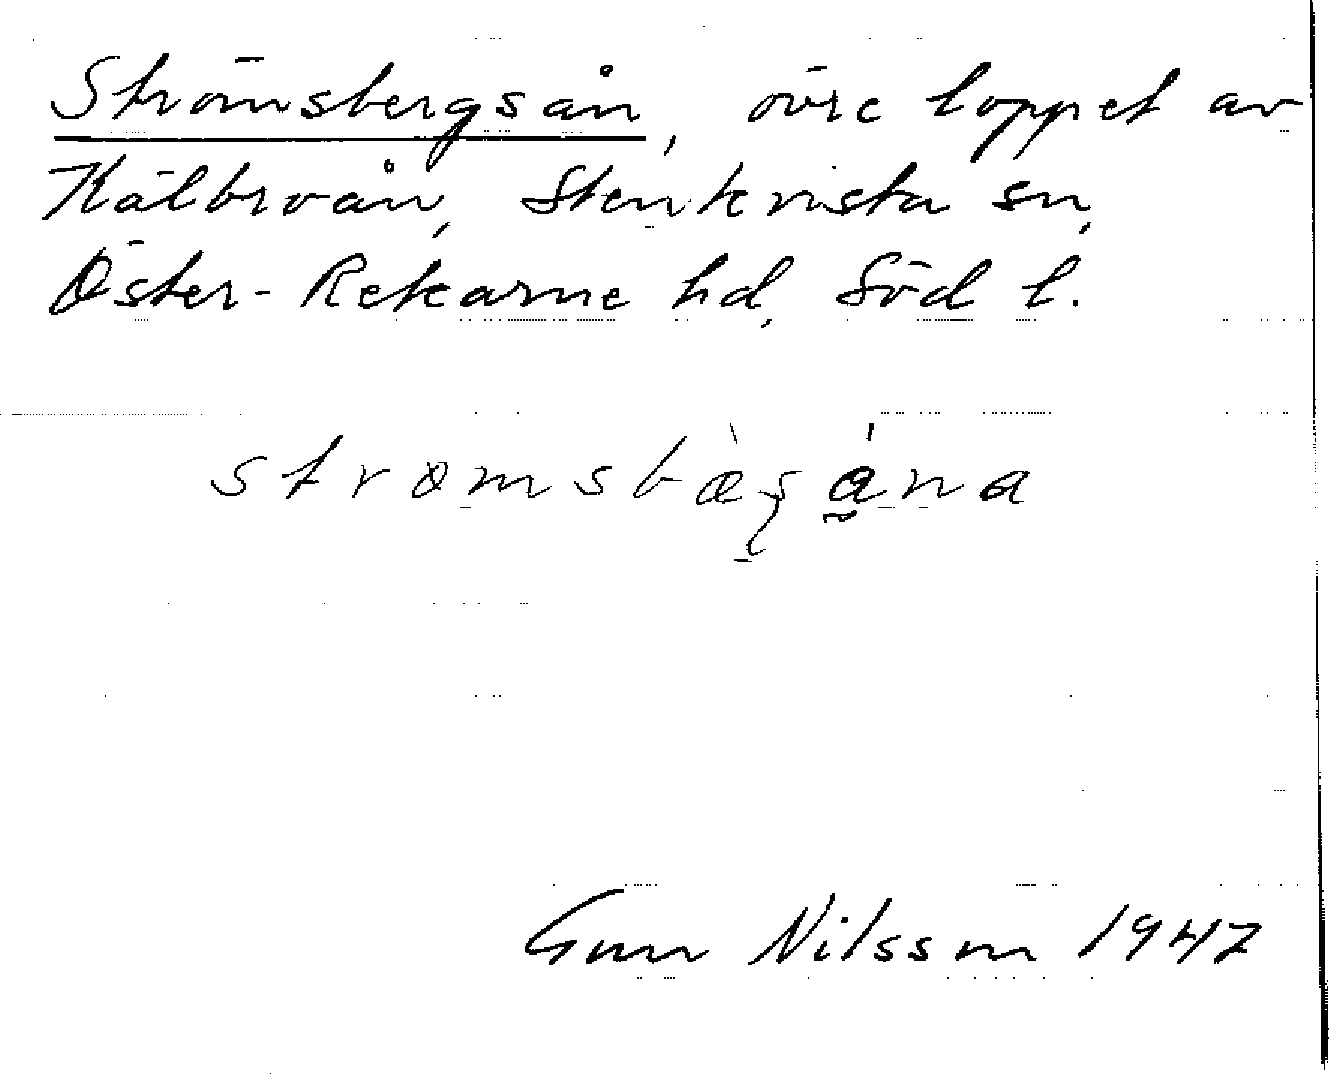 Strömsbergsån, övre loppet av
Kälbroån, Stenkvista sn,
Öster-Rekarne hd, Söd l.
strømsbæ̀sána
Gun Nilsson 1947